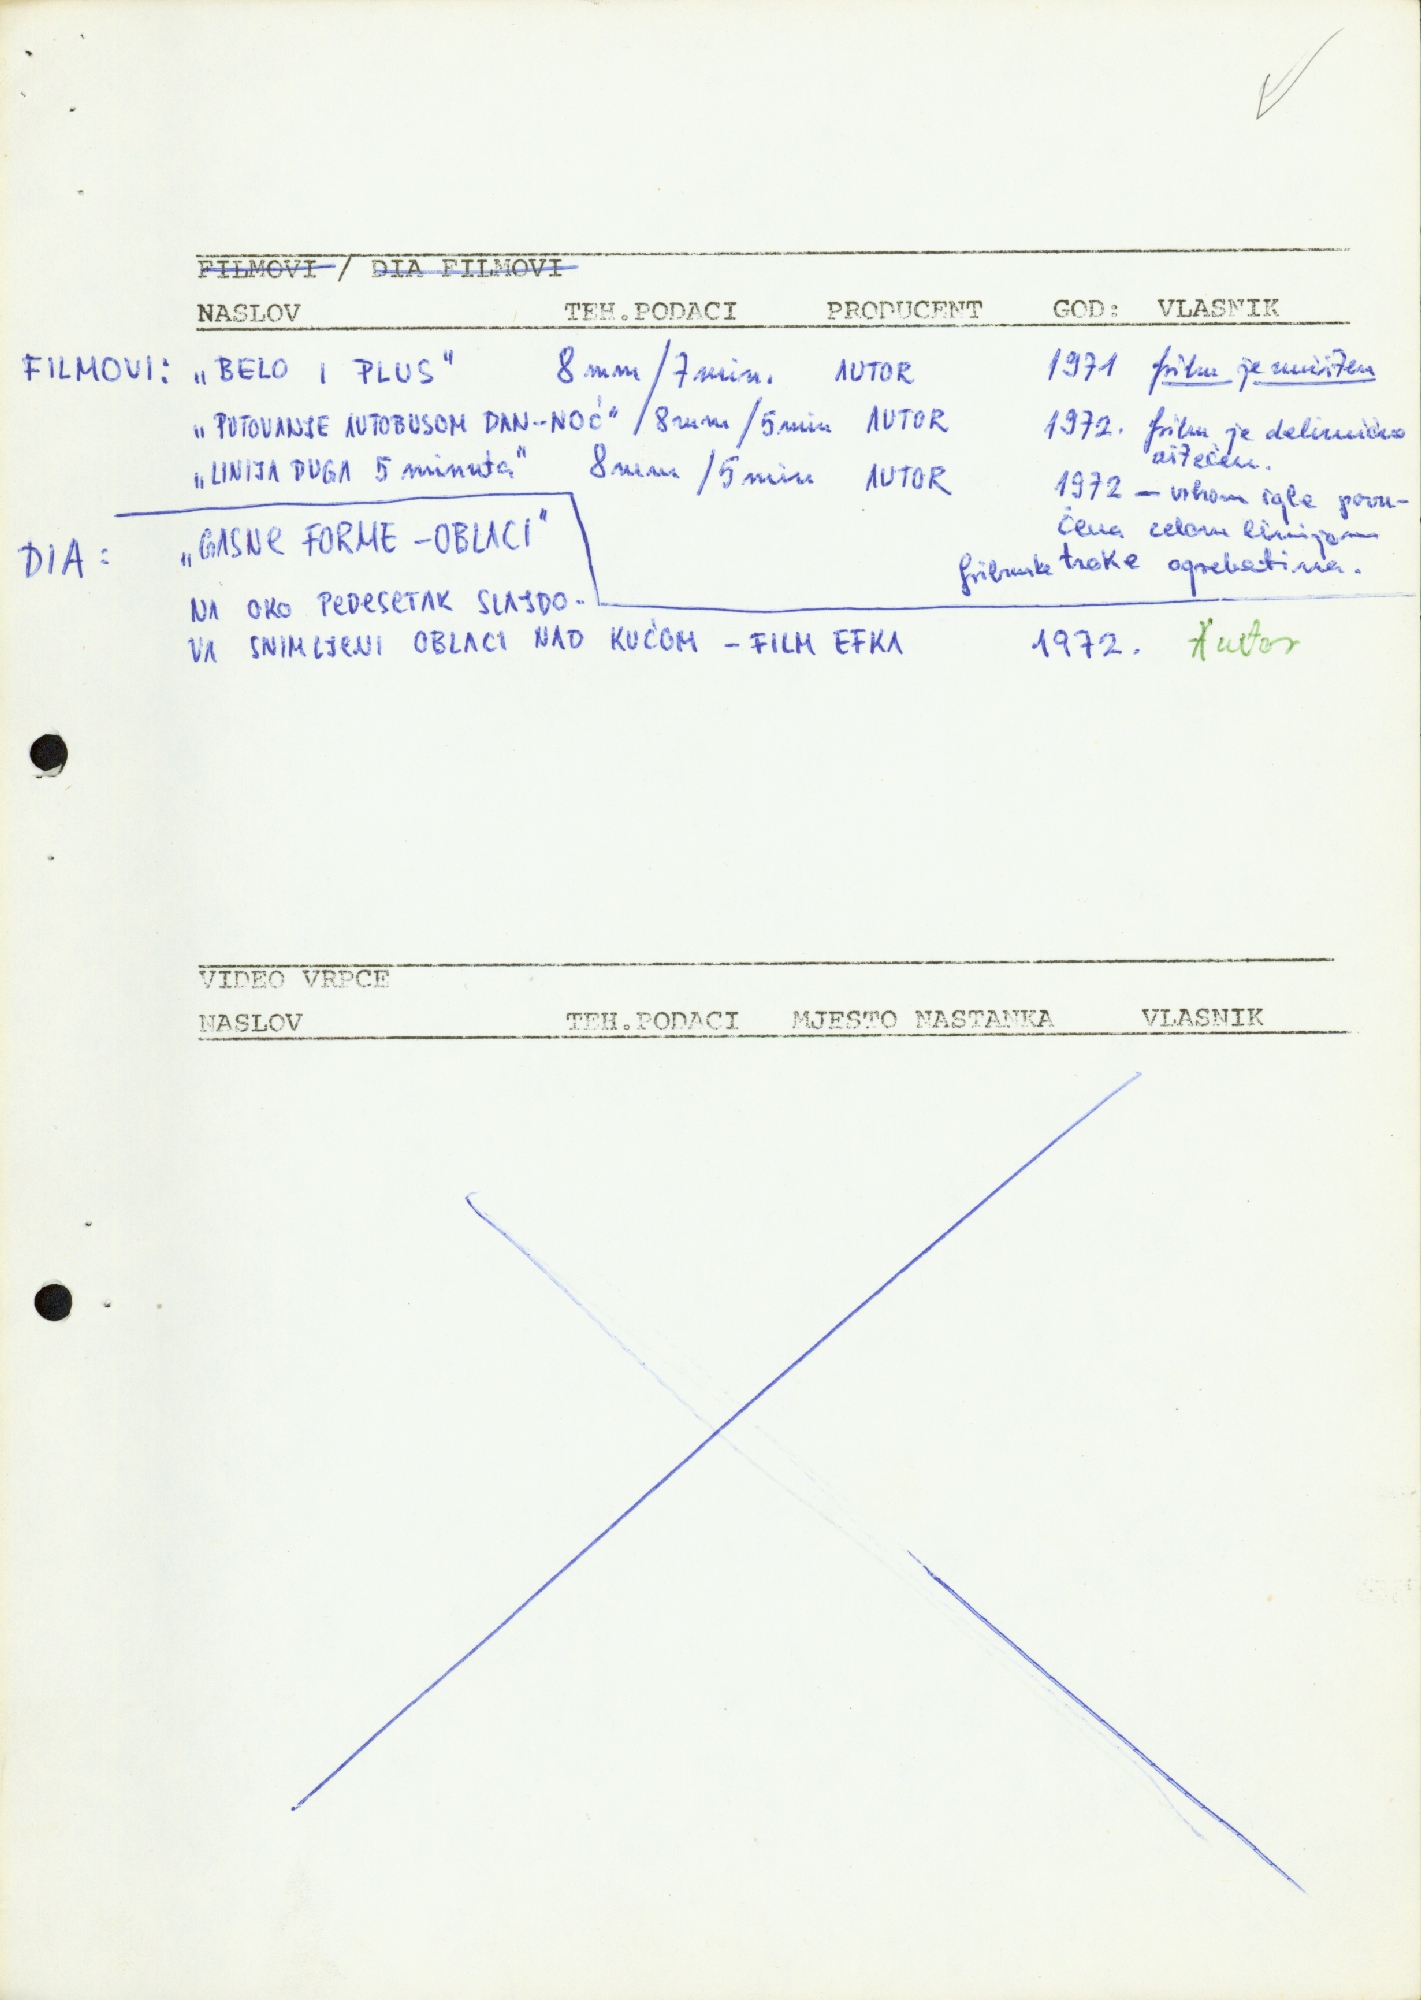 FILMOVI / DIA FILMOVI
NASLOV TEH.PODACI PRODUCENT GOD: VLASNIK
FILMOVI: „BELO I PLUS“ 8 mm/7 min. AUTOR 1971 film je uništen
„PUTOVANJE AUTOBUSOM DAN-NOĆ“ / 8 mm/5 min AUTOR 1972. film je delimično
oštećen.
„LINIJA DUGA 5 minuta“ 8 mm/5 min AUTOR 1972 – vrhom igle povu-
čena celom linijom
filmske trake ogrebotina.
DIA: „GASNE FORME – OBLACI“
NA OKO PEDESETAK SLAJDO-
VA SNIMLJENI OBLACI NAD KUĆOM – FILM EFKA 1972. Autor
VIDEO VRPCE
NASLOV TEH.PODACI MJESTO NASTANKA VLASNIK